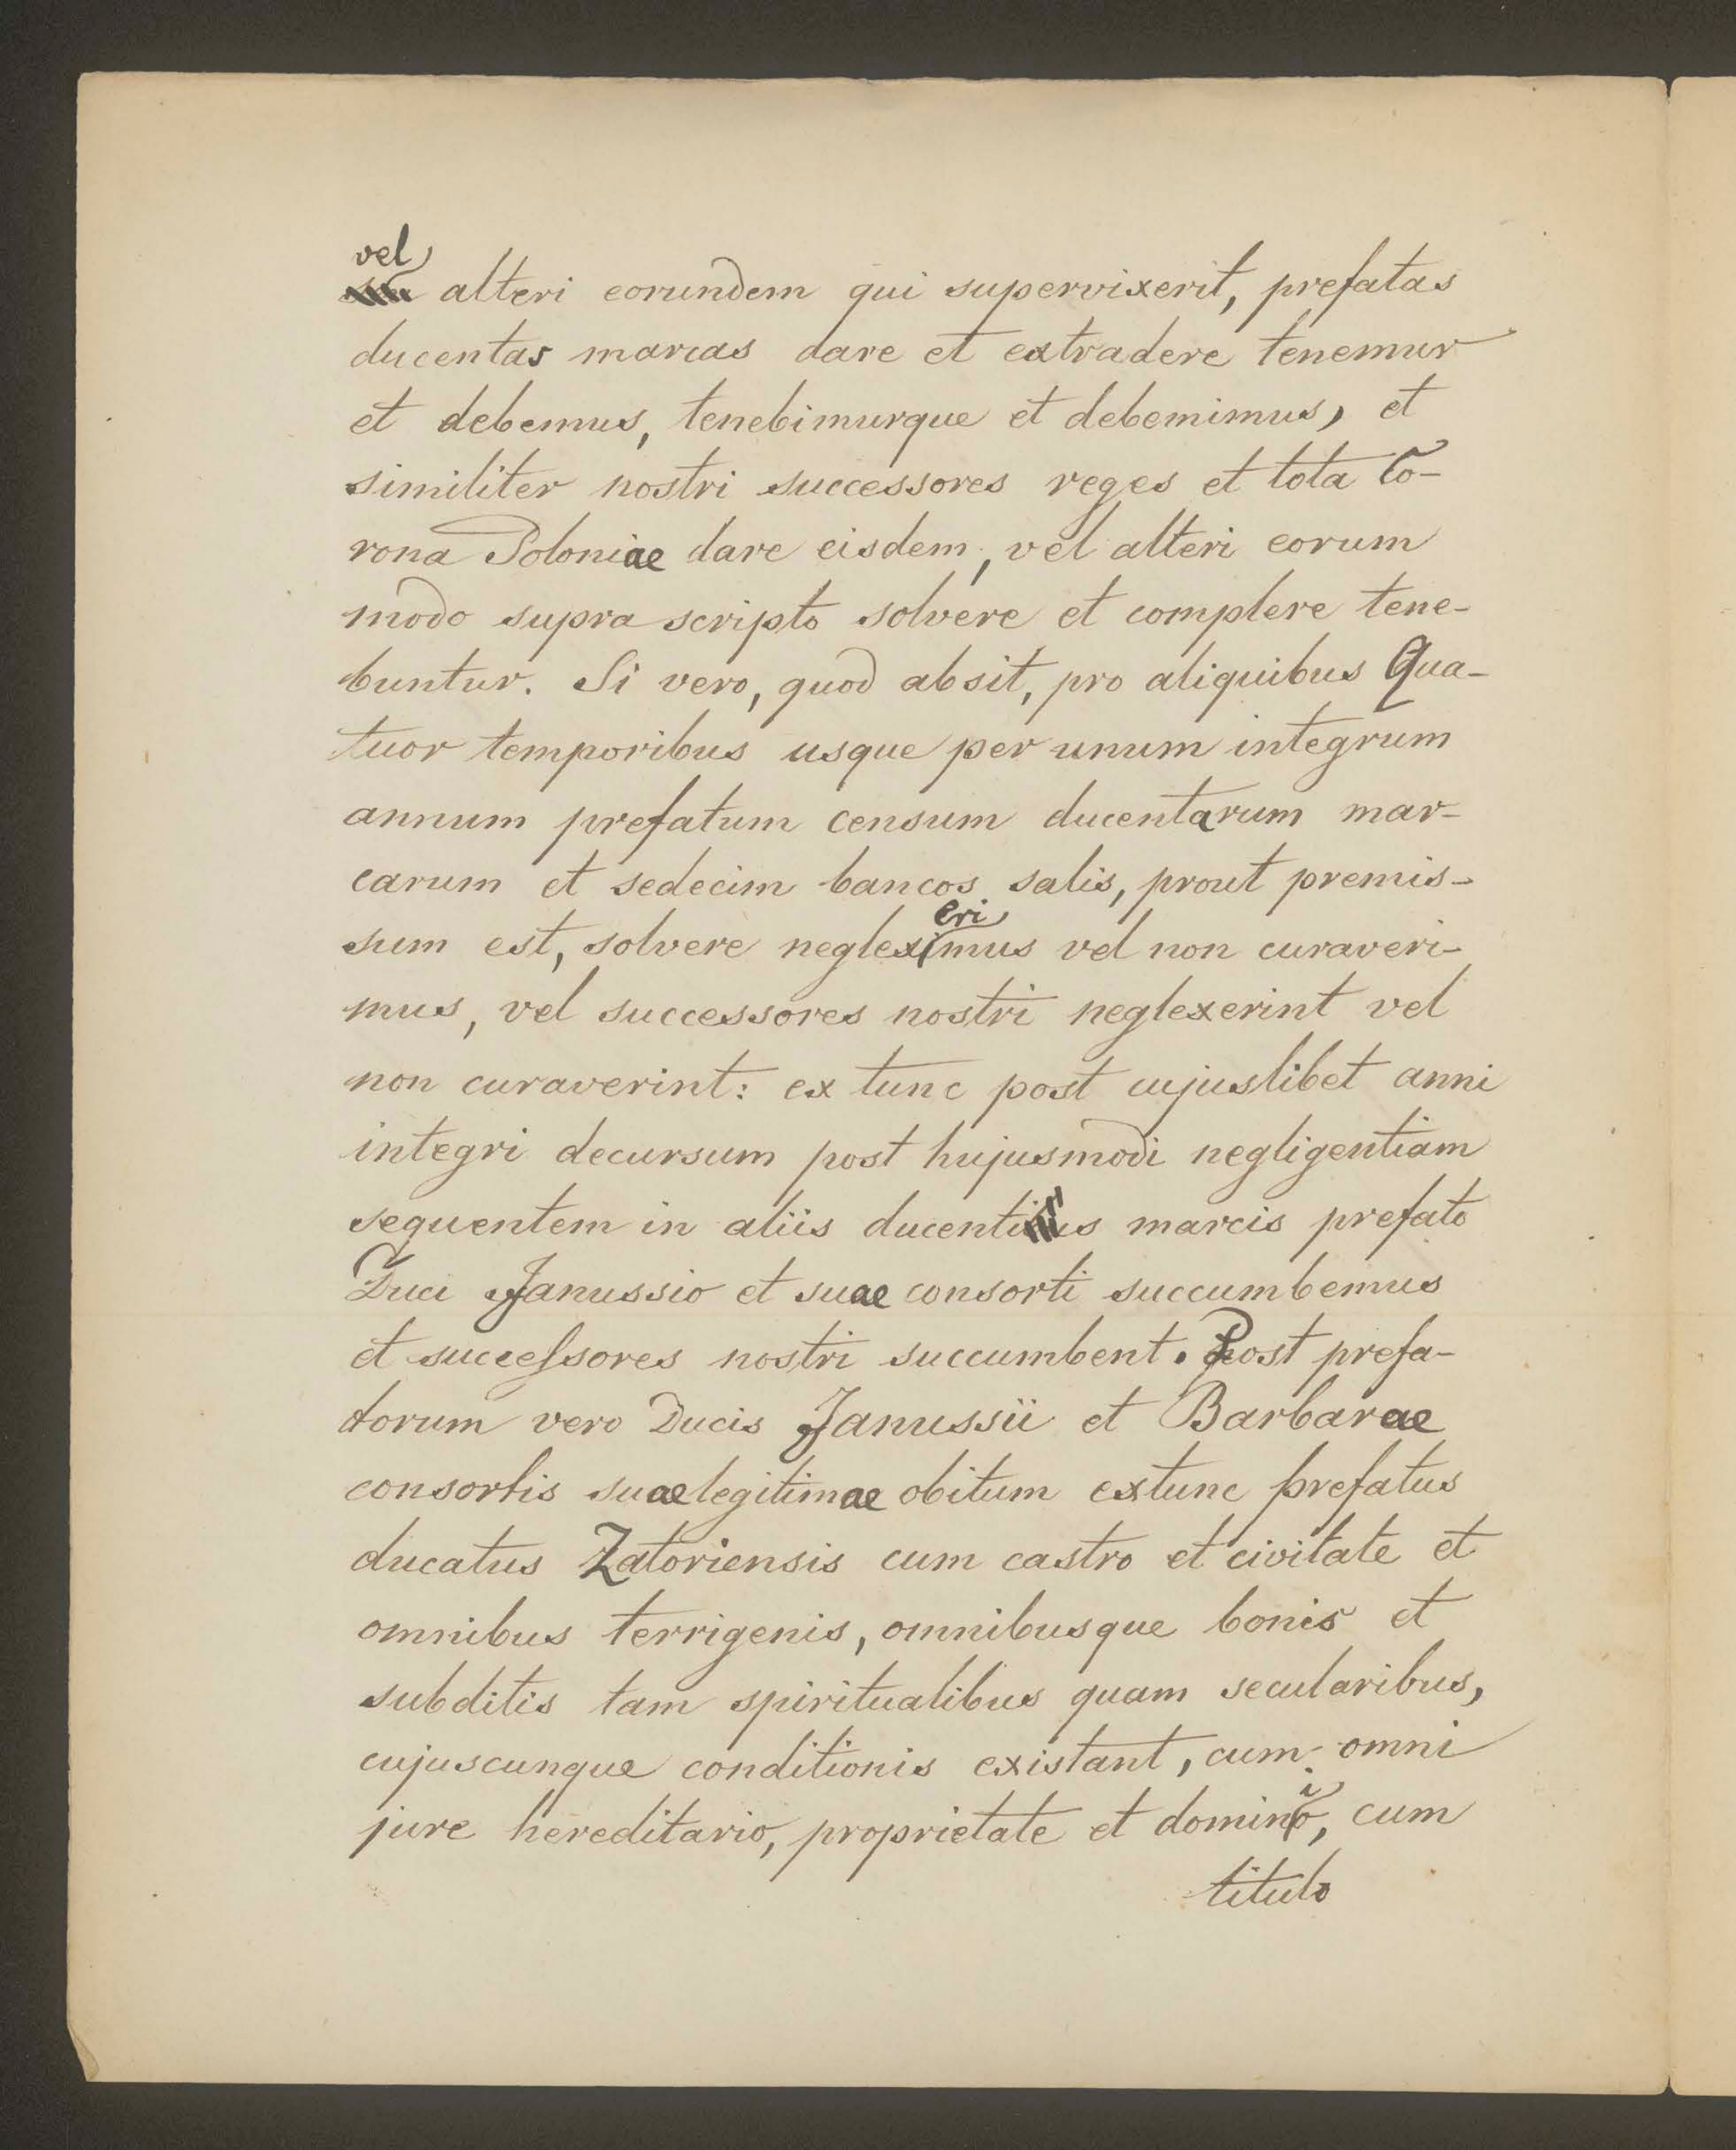 vel alteri eorundem qui supervixerit, prefatas
ducentas marcas dare et extradere tenemur
et debemus, tenebimurque et debemimus, et
similiter nostri successores reges et tota Co-
rona Poloniae dare eisdem, vel alteri eorum
modo supra scripto solvere et complere tene-
buntur. Si vero, quod absit, pro aliquibus Qua-
tuor temporibus usque per unum integrum
annum prefatum censum ducentarum mar-
carum et sedecim bancos salis, prout premis-
sum est, solvere neglexerimus vel non curaveri-
mus, vel successores nostri neglexerint vel
non curaverint: ex tunc post cujuslibet anni
integri decursum post hujusmodi negligentiam
sequentem in aliis ducentis marcis prefato
Duci Janussio et suae consorti succumbemus
et successores nostri succumbent. Post prefa-
torum vero Ducis Janussii et Barbarae
consortis suae legitimae obitum extunc prefatus
ducatus Zatoriensis cum castro et civitate et
omnibus terrigenis, omnibusque bonis et
subditis tam spiritualibus quam secularibus,
cujuscunque conditionis existant, cum omni
jure hereditario, proprietate et dominio, cum
titulo